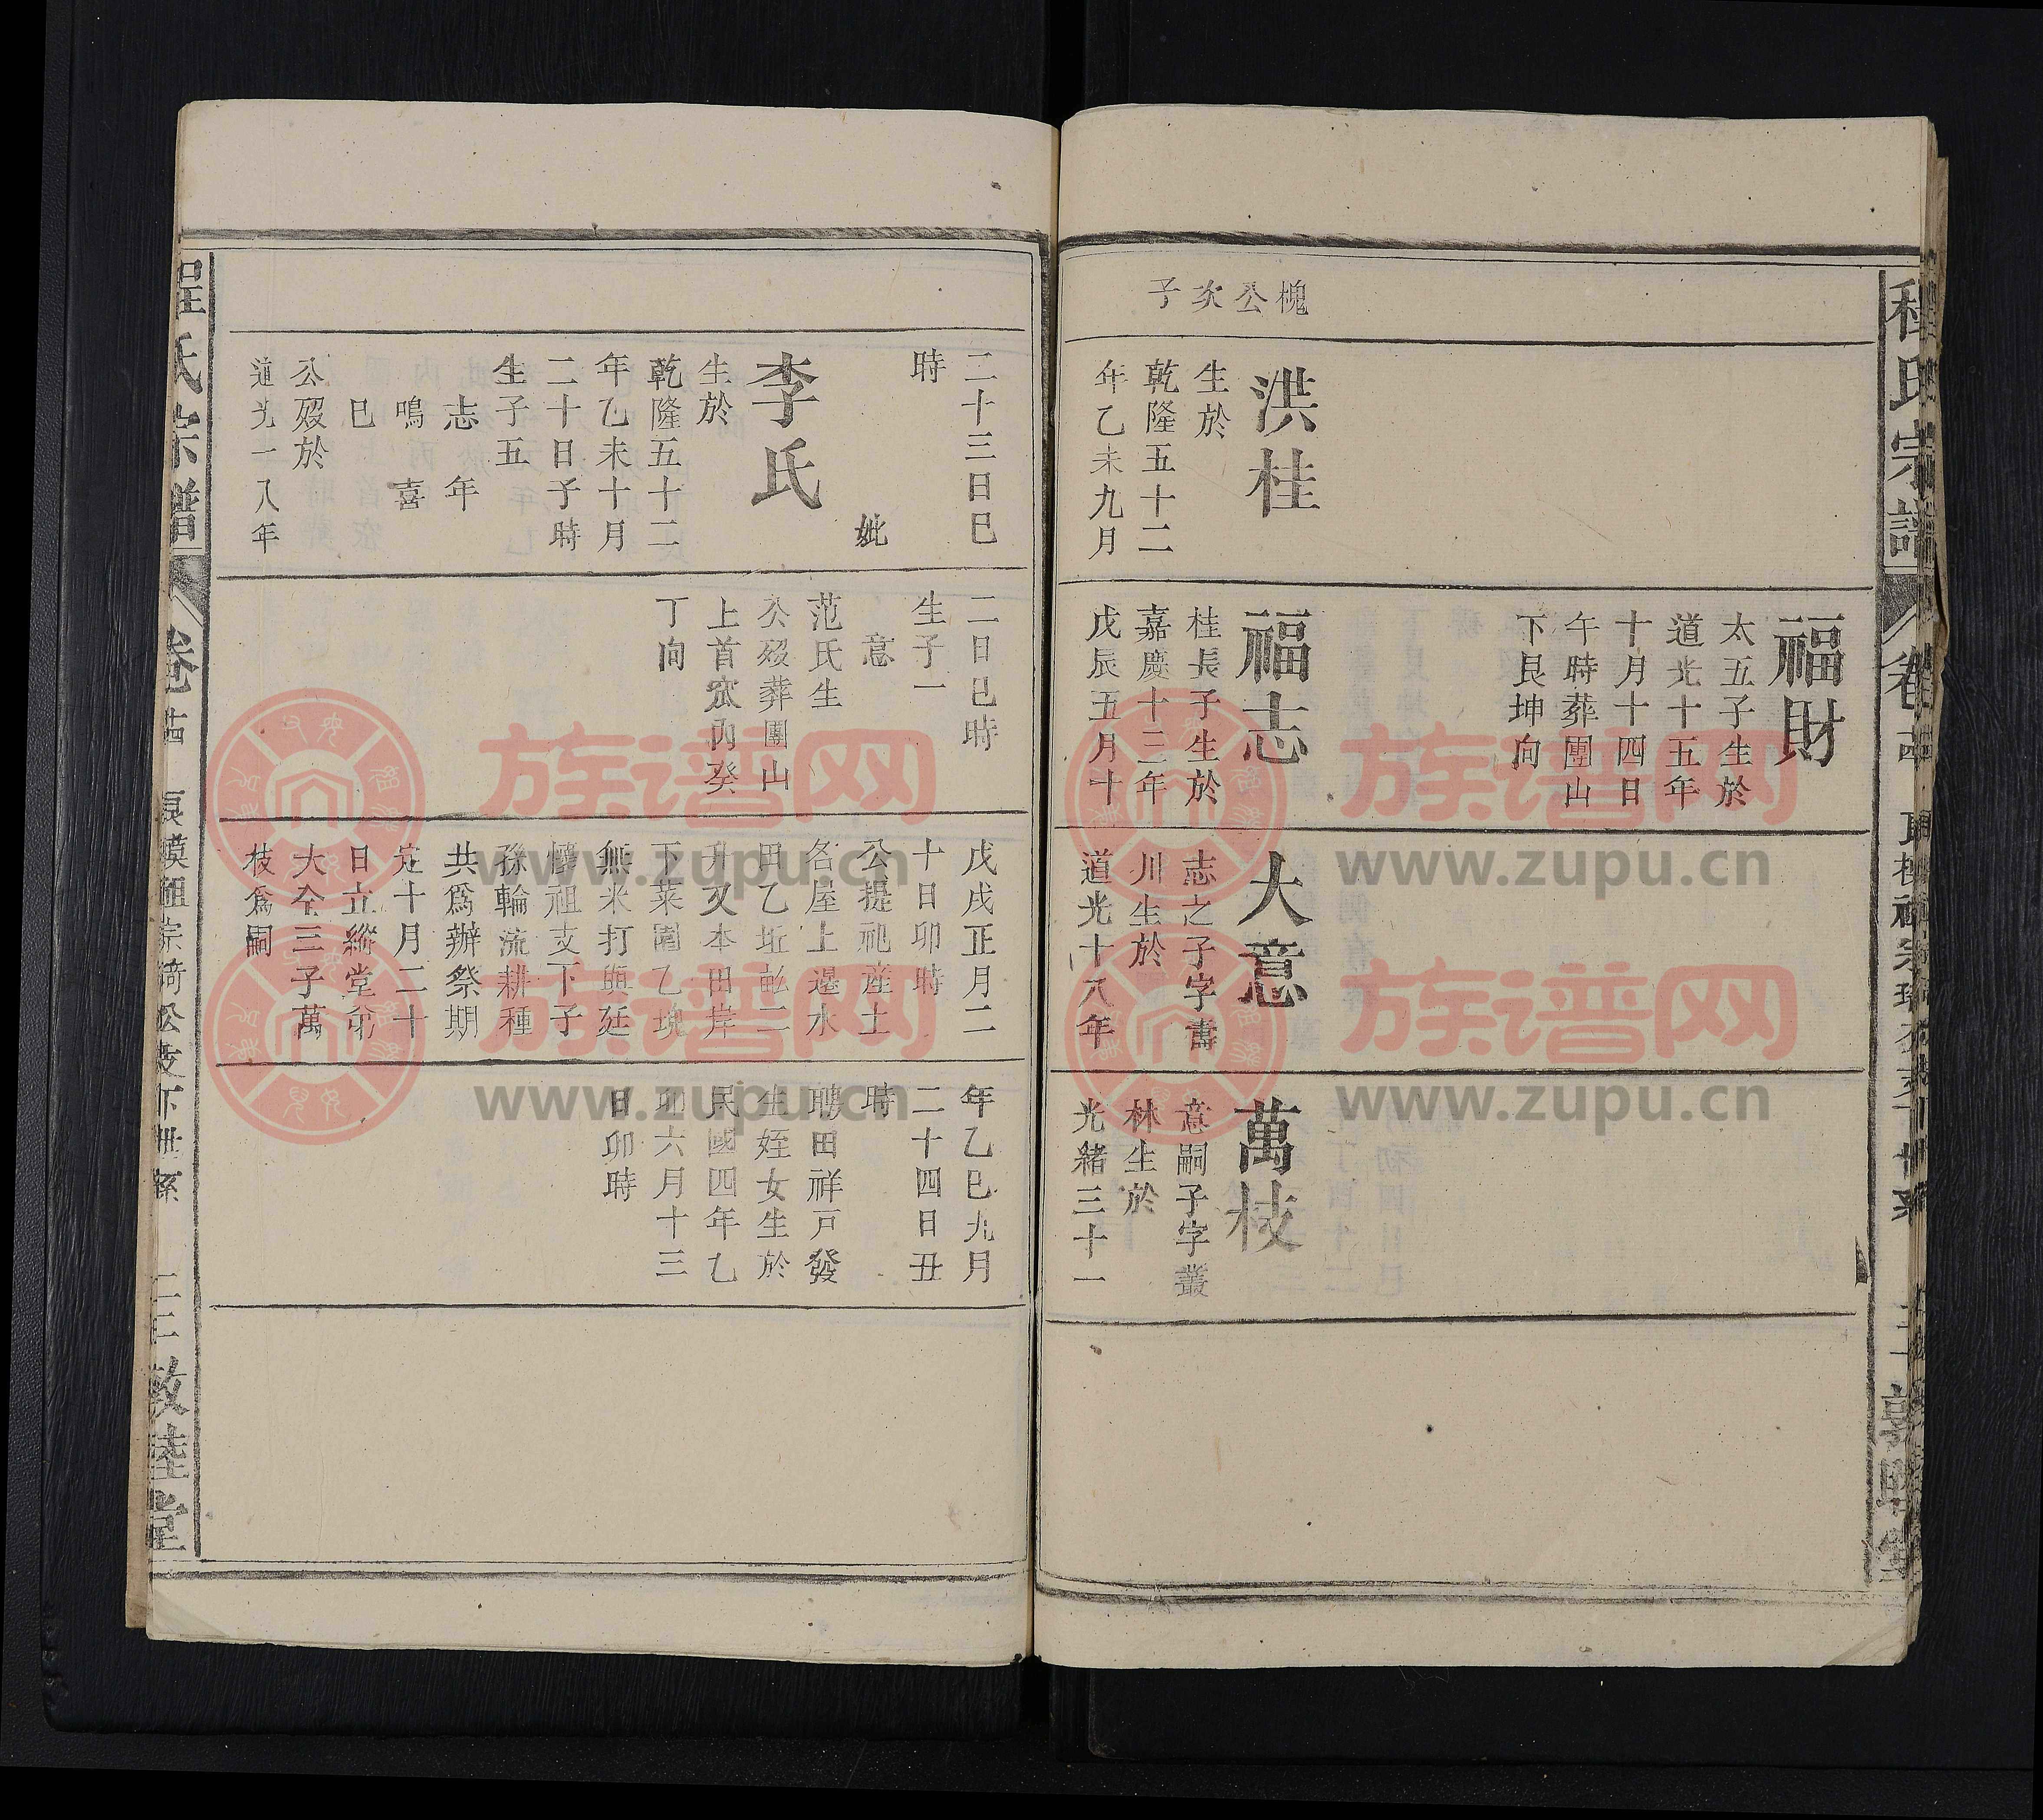 程氏宗譜
福財
太五子生於
道光十五年
十月十四日
午時葬團山
下艮坤向
槐公次子
洪桂
生於
乾隆五十二
年乙未九月
福志
桂長子生於
嘉慶十三年
戊辰五月十
大意
志之子字壽
川生於
道光十八年
萬枝
意嗣子字叢
林生於
光緒三十一
二十三日巳
時
妣
李氏
生於
乾隆五十二
年乙未十月
二十日子時
生子五
志 年
鳴 喜
巳
公歿於
道光一八年
二日巳時
生子一
意
范氏生
公歿葬團山
上首窊內癸
丁向
戊戌正月二
十日卯時
公提祀產土
名屋上邊水
田乙坵畝二
升又本田岸
下菜園乙塊
無米打與廷
懋祖支下子
孫輪流耕種
共爲辦祭期
定十月二十
日立縱堂弟
大全三子萬
枝爲嗣
年乙巳九月
二十四日丑
時
聘田祥戸發
生姪女生於
民國四年乙
卯六月十三
日卯時
程氏宗譜
卷
敦睦堂